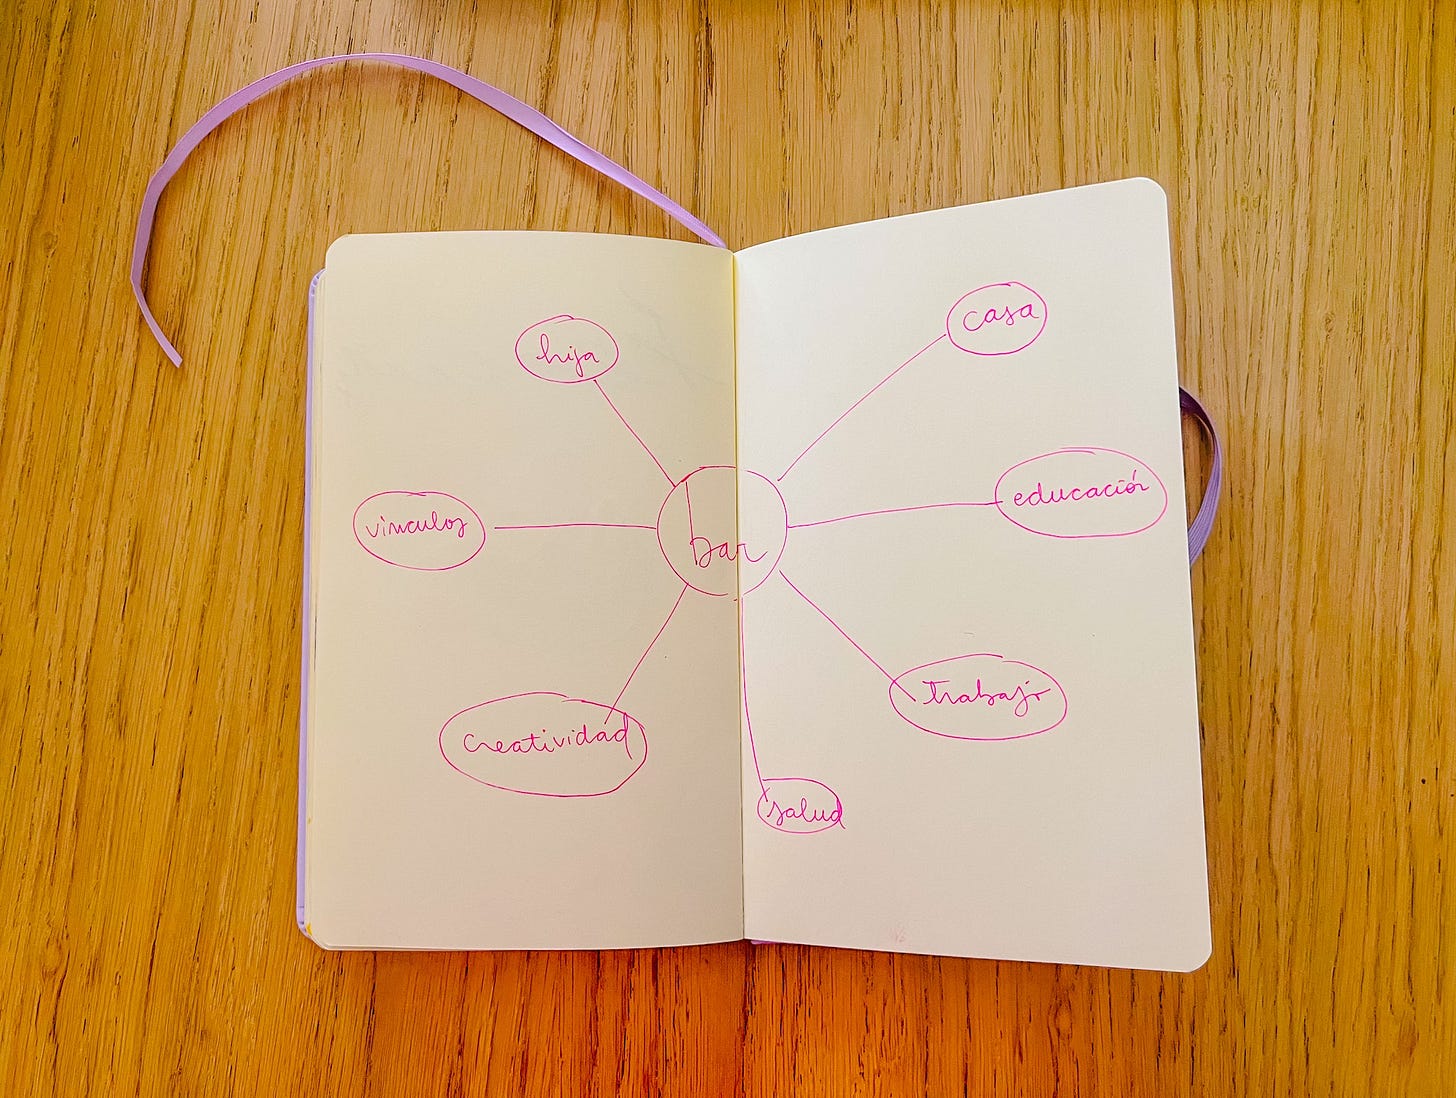 hija
casa
vinculos
educación
bar
creatividad
trabajo
salud